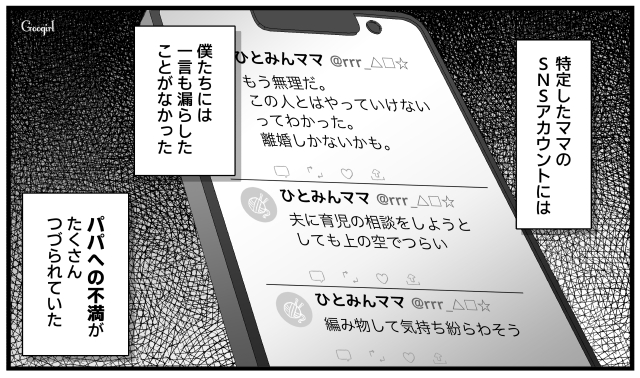 Googirl
特定したママの
SNSアカウントには
ひとみんママ @rrr_△□☆
もう無理だ。
この人とはやっていけない
ってわかった。
離婚しかないかも。
ひとみんママ @rrr_△□☆
夫に育児の相談をしようと
しても上の空でつらい
ひとみんママ @rrr_△□☆
編み物して気持ち紛らわそう
僕たちには
一言も漏らした
ことがなかった
パパへの不満が
たくさん
つづられていた